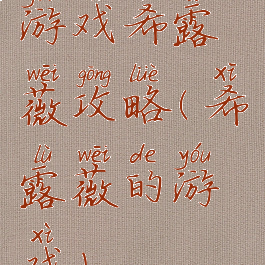 游戏希露
wēi gōng lüè xī
薇攻略(希
lù wēi de yóu
露薇的游
xì
戏)